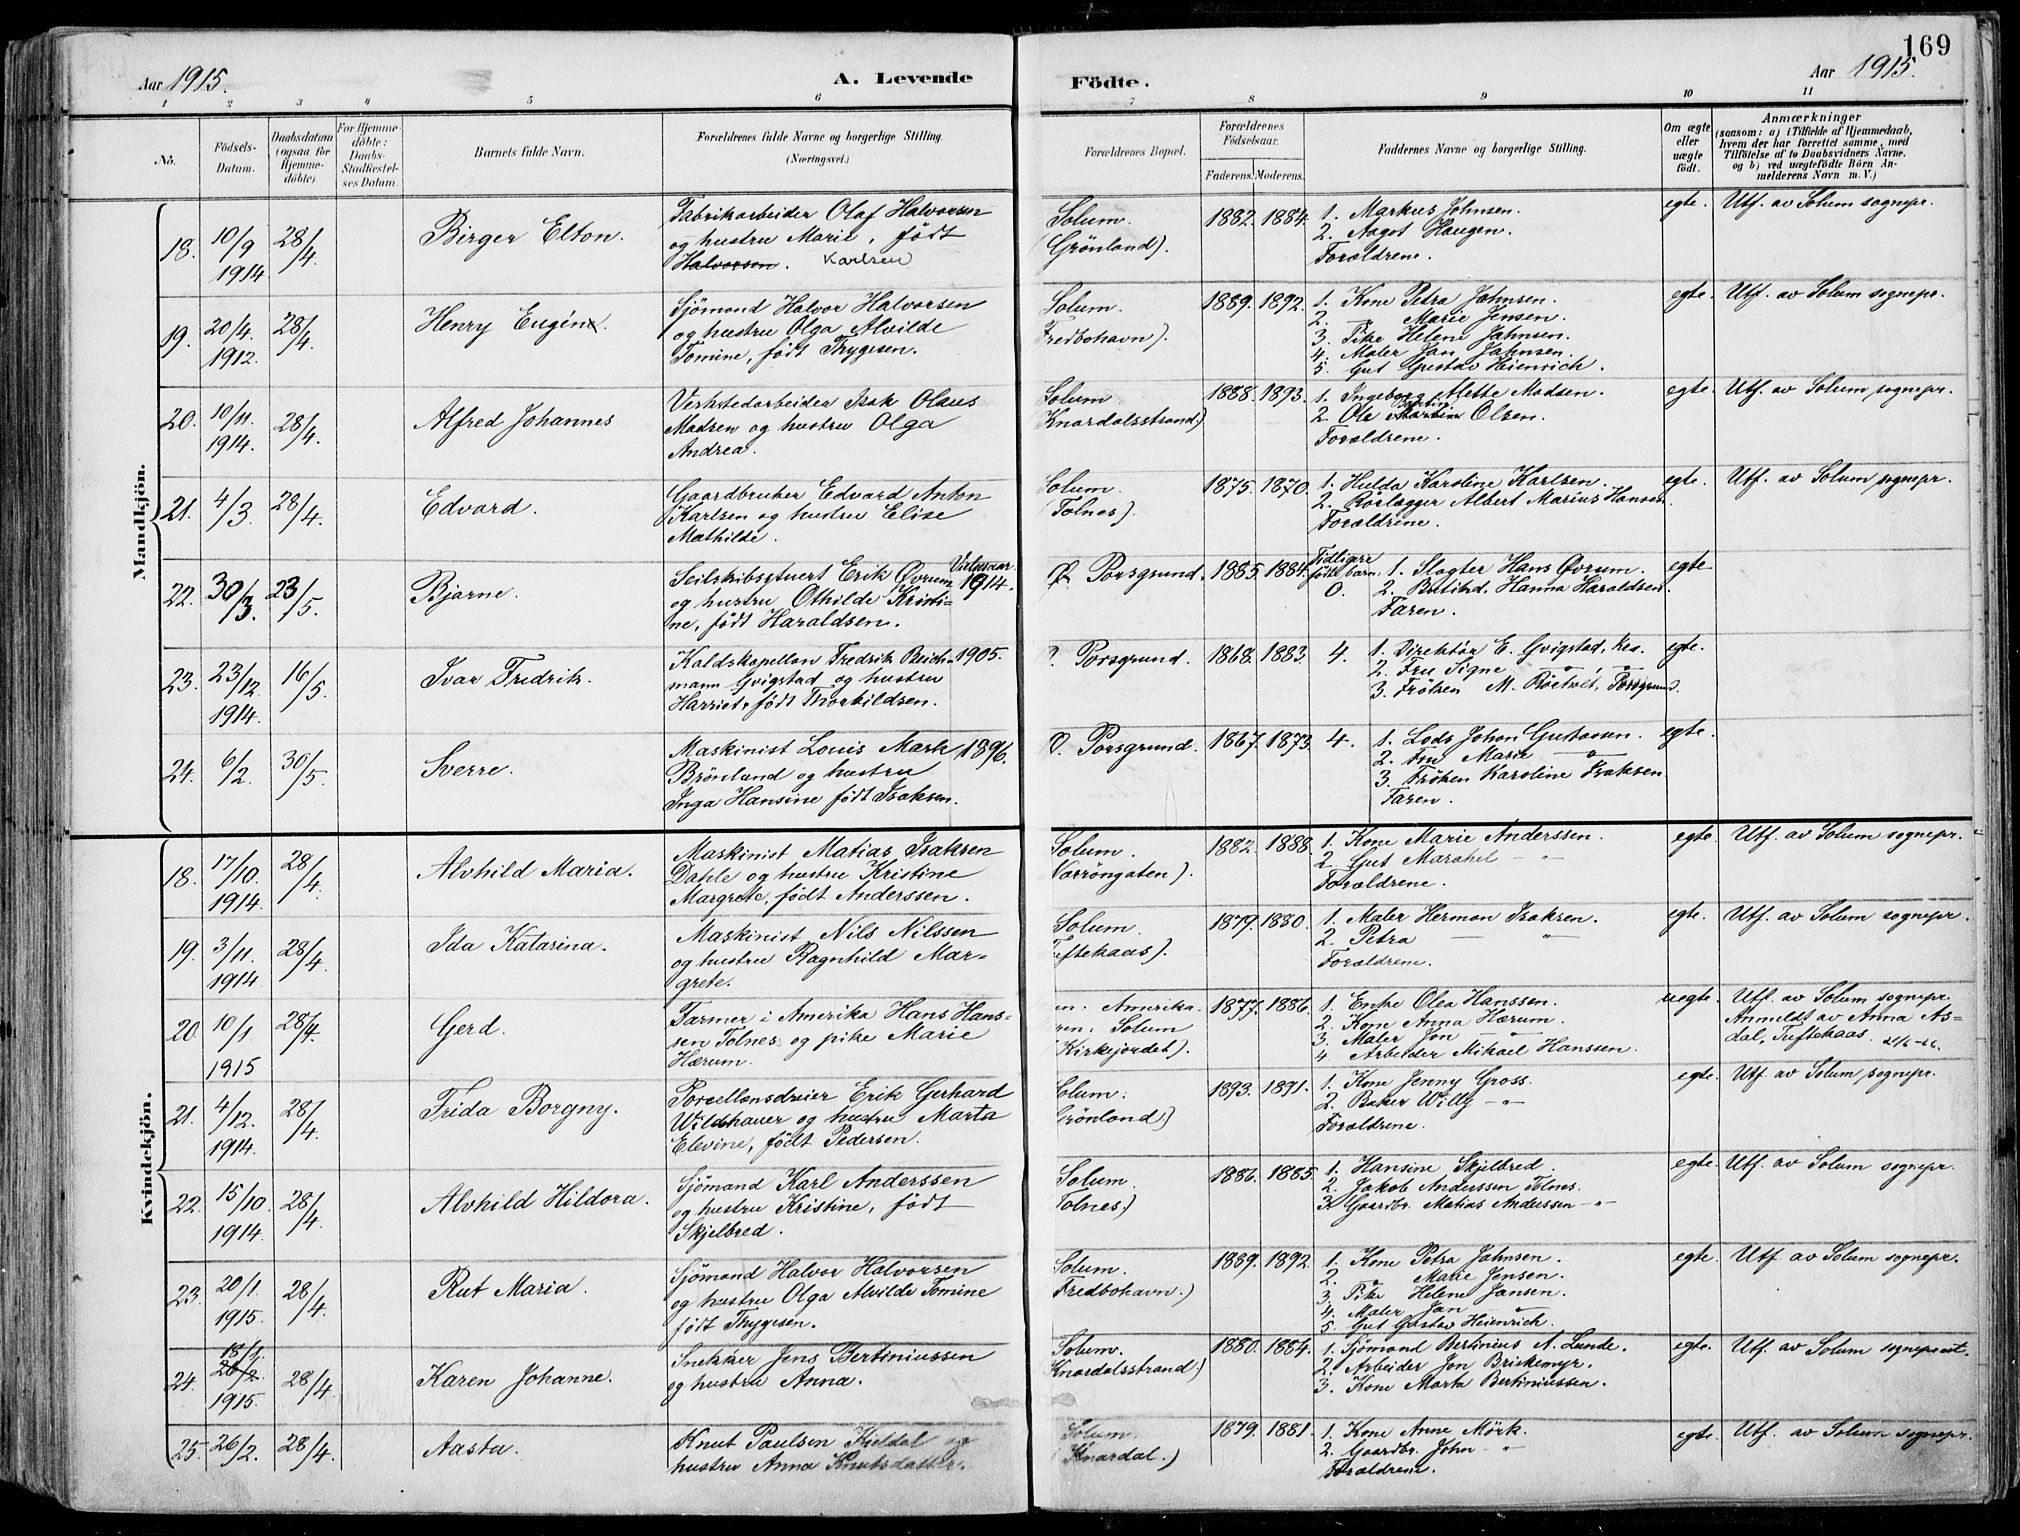 169
Aar 1915.
A. Levende
Födte.
Aar 1915.
1 2 3 4 5 6 7 8 9 10 11
No.
Födsels-Datum.
Daabsdatum (ogsaa for Hjemme-döbte).
For Hjemme-döbte: Daabs-Stadfæstel-ses Datum.
Barnets fulde Navn.
Forældrenes fulde Navne og borgerlige Stilling. (Næringsvei.)
Forældrenes Bopæl.
Forældrenes Födselsaar.
Faderens. Moderens.
Faddernes Navne og borgerlige Stilling.
Om ægte eller uægte födt.
Anmærkninger
(saasom: a) i Tilfælde af Hjemmedaab, hvem der har forrettet samme, med Tilföielse af to Daabsvidners Navne, og b) ved uægtefödte Börn An-melderens Navn m. V.)
Mandkjön.
18. 10/9 1914 28/4. Birger Elton. Fabrikarbeider Olaf Halvorsen
og hustru Marie, født
Halvorsen. Karlsen
Solum. Grönland). 1882. 1884. 1. Markus Johnsen.
2. Aagot Haugen.
Forældrene.
egte. Utf. av Solum sognepr.
19. 20/4. 1912. 28/4. Henry Eugène. Sjömand Halvor Halvorsen
og hustru Olga Alvilde
Tomine, født Thygesen.
Solum. Fredbohavn). 1889. 1892. 1. Kone Petra Jahnsen.
2. — Marie Jensen.
3. Pike Helene Jahnsen.
4. Maler Jan Jahnsen.
5. Gut Gustav Hienrich.
egte. Utf. av Solum sognepr.
20. 10/11. 1914. 28/4. Alfred Johannes. Verkstedarbeider Isak Olaus
Madsen og hustru Olga
Andrea.
Solum Knardalsstrand.) 1888. 1893. 1. Ingeborg Mette Madsen.
2. Ole Martin Olsen.
Forældrene.
egte. Utf. av Solum sognepr.
21. 4/3. 28/4. Edvard. Gaardbruker Edvard Anton
Karlsen og hustru Elise
Mathilde.
Solum. (Tolnes). 1875. 1870. 1. Hulda Karoline Karlsen.
2. Rörlægger Albert Marius Hansen.
Forældrene.
egte. Utf. av Solum sognepr.
22. 30/3. 23/5. Bjarne. Seilskibsstuert Erik Øvrum
og hustru Othilde Kristi-
ne, født Haraldsen.
Vielsesaar. 1914.
Ø. Porsgrund. 1885. 1884. Tidligere født barn: 0. 1. Slagter Hans Øvrum.
2. Butikd. Hanna Haraldsen.
Faren.
egte
23. 23/12. 1914. 16/5. Ivar Fredrik. Kaldskapellan Fredrik Beich-
mann Gvigstad og hustru
Harriet, født Thorkildsen.
1905.
Porsgrund. 1868. 1883. 4. 1. Direktør E. Gvigstad, Kra.
2. Fru Signe — " — " —
3. Fröken M. Röetvet, Porsgrund.
egte.
24. 6/2. 30/5. Sverre. Maskinist Louis Mark
Brönlund og hustru
Inga Hansine født Isaksen.
1896.
Ø. Porsgrund. 1867. 1873. 4. 1. Lods Johan Gustavsen.
2. Fru Marie — " —
3. Fröken Karoline Isaksen.
Faren.
egte.
Kvindekjön.
18. 17/10. 1914. 28/4. Alvhild Maria. Maskinist Matias Isaksen
Dahle og hustru Kristine
Margrete, født Anderssen.
Solum. Norröngaten). 1882. 1888. 1. Kone Marie Anderssen.
2. Gut — " —
Forældrene.
egte. Utf. av Solum sognepr.
19. 3/11. 1914. 28/4. Ida Katarina. Maskinist Nils Nilssen
og hustru Ragnhild Mar-
grete.
Solum. Tuftekaas). 1879. 1880. 1. Maler Herman Isaksen.
2. Petra — " —
Forældrene.
egte. Utf. av Solum sognepr.
20. 10/1. 1915 28/4. Gerd. Farmer i Amerika Hans Hans-
sen Tolnes og pike Marie
Hærum.
en: Amerika. ren: Solum Kirkejordet). 1877. 1886. 1. Enke Olea Hanssen.
2. Kone Anna Hærum.
3. Maler Jon — " —
4. Arbeider Mikael Hanssen.
uegte. Utf. av Solum sognepr.
Anmeldt av Anna As-
dal, Tuftekaas.
21. 4/12. 1914. 28/4. Frida Borgny. Porcellænsdreier Erik Gerhard
Wildhauer og hustru Marta
Elevine, født Pedersen.
Solum: Grönland.) 1893. 1891. 1. Kone Jenny Gross.
2. Baker Willy — " —
Forældrene.
egte. Utf. av Solum sognepr.
22. 15/10. 1914. 28/4. Alvhild Hildora. Sjömand Karl Anderssen
og hustru Kristine, født
Skjelbred.
Solum. Tolnes.) 1886. 1885. 1. Hansine Skjelbred.
2. Jakob Anderssen Tolnes.
3. Gaardbr. Matias Anderssen — " —
egte. Utf. av Solum sognepr.
23. 20/1. 1915. 28/4. Rut Maria. Sjömand Halvor Halvorsen
og hustru Olga Alvilde Tomine
født Thygesen.
Solum. Fredbohavn.) 1889. 1892 1. Kone Petra Jahnsen.
2. " Marie Jensen.
3. Pike Helene Jansen.
4. Maler Jan — " —
5. Gut Gustav Heinrich.
egte. Utf. av Solum sognepr.
24. 18/2. 1915. 28/4. Karen Johanne. Snekker Jens Bertiniussen
og hustru Anna.
Solum. Knardalsstrand.) 1880. 1884. 1. Sjömand Bertinius A. Lunde.
2. Arbeider Jon Brickemyr.
3. Kone Marta Bertiniussen.
egte. Utf. av Solum sogneprest.
25. 26/2. 28/4. Aasta. Knut Paulsen Kjeldal og
hustru Anna Knutsdatter.
Solum. (Knardal.) 1879. 1881. 1. Kone Anne Mörk.
2. Gaardbr. John — " —
Forældrene.
egte. Utf. av Solum sognepr.